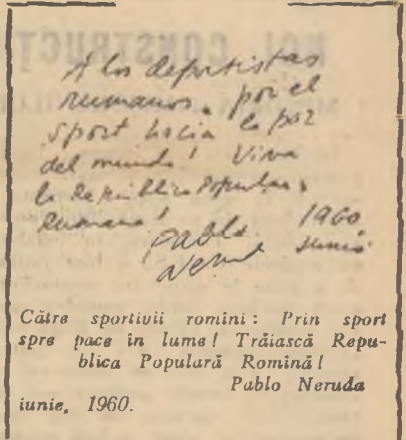 A los deportistas
rumanos. por el
sport hacia la paz
del mundo! Viva
la Republica Popular
Rumana!
1960
Pablo junio
Neruda
Către sportivii romîni: Prin sport
spre pace în lume! Trăiască Repu-
blica Populară Romînă!
Pablo Neruda
iunie, 1960.